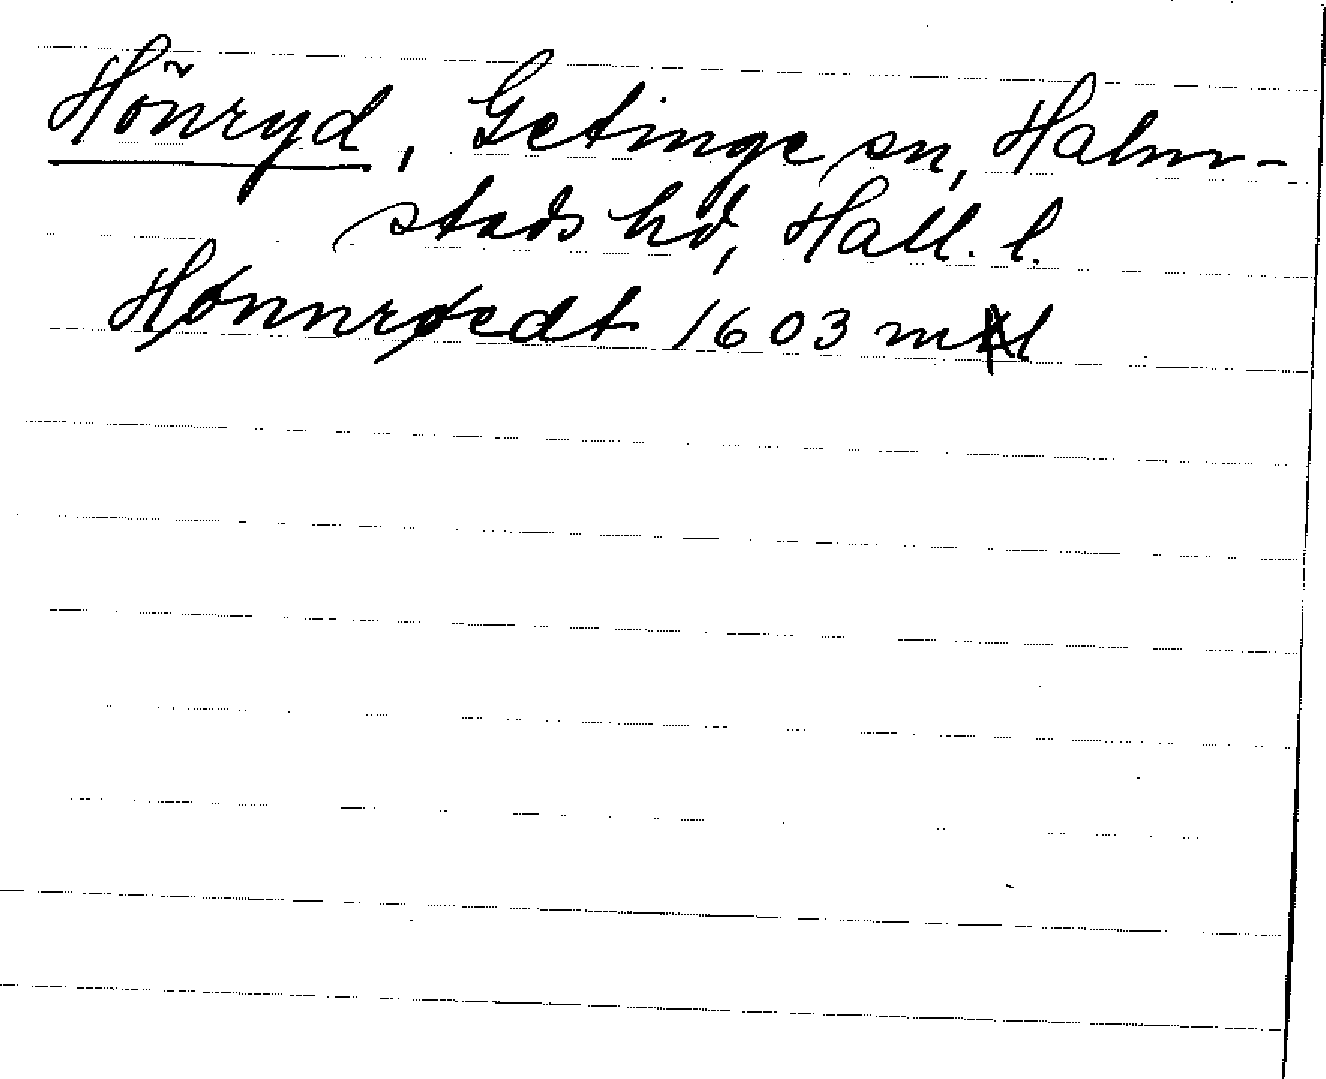 Hönryd, Getinge sn, Halm-
stads hd, Hall. l.
Hønnrøedt 1603